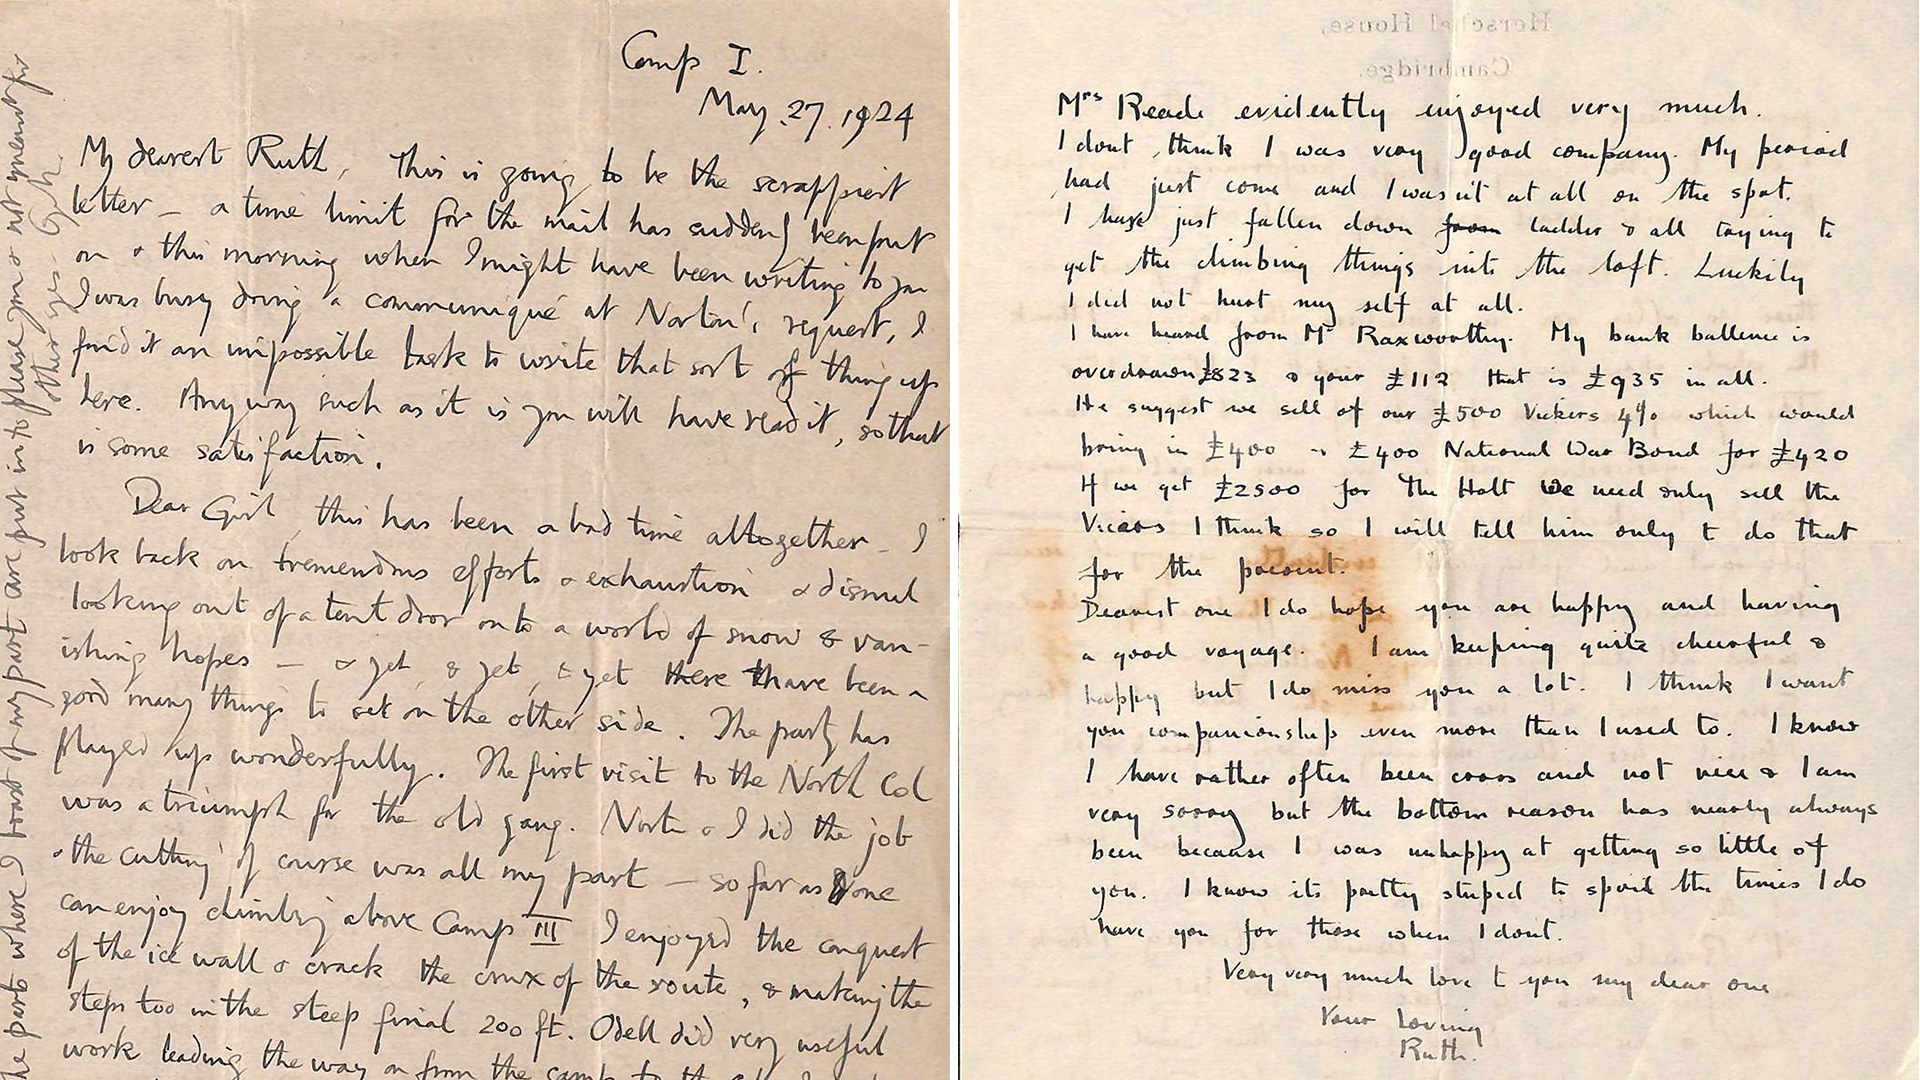 Camp I.
May. 27. 1924
My dearest Ruth, This is going to be the scrappiest
letter – a time limit for the mail has suddenly been put
on & this morning when I might have been writing to you
I was busy doing a communiqué at Norton's request, I
find it an impossible task to write that sort of thing up
here. Anyway such as it is you will have read it, so that
is some satisfaction.
Dear Girl, this has been a bad time altogether – I
look back on tremendous efforts & exhaustion & dismal
looking out of a tent door onto a world of snow & van-
ishing hopes – & yet, & yet, & yet there have been a
good many things to set on the other side. The party has
played up wonderfully. The first visit to the North Col
was a triumph for the old gang. Norton & I did the job
& the cutting of course was all my part – so far as one
can enjoy climbing above Camp III I enjoyed the conquest
of the ice wall & crack the crux of the route, & making the
steps too in the steep final 200 ft. Odell did very useful
work leading the way on from the camp to the
The parts where I boast of my part are put in to please you & not meant for
other eyes – G.
Herschel House,
Cambridge.
Mrs Reade evidently enjoyed very much.
I dont think I was very good company. My period
had just come and I wasnt at all on the spot.
I have just fallen down from ladder & all trying to
get the climbing things into the loft. Luckily
I did not hurt my self at all.
I have heard from Mr Raxworthy. My bank ballence is
overdrawn £823 & your £112 that is £935 in all.
He suggest we sell of our £500 Vickers 4% which would
bring in £400 £400 National War Bond for £420
If we get £2500 for The Holt We need only sell the
Vicers I think so I will tell him only to do that
for the present.
Dearest one I do hope you are happy and having
a good voyage. I am keeping quite cheerful &
happy but I do miss you a lot. I think I want
you companionship even more than I used to. I know
I have rather often been cross and not nice & I am
very sorry but the bottom reason has nearly always
been because I was unhappy at getting so little of
you. I know its pretty stupid to spoil the times I do
have you for those when I dont.
Very very much love to you my dear one
Your loving
Ruth.